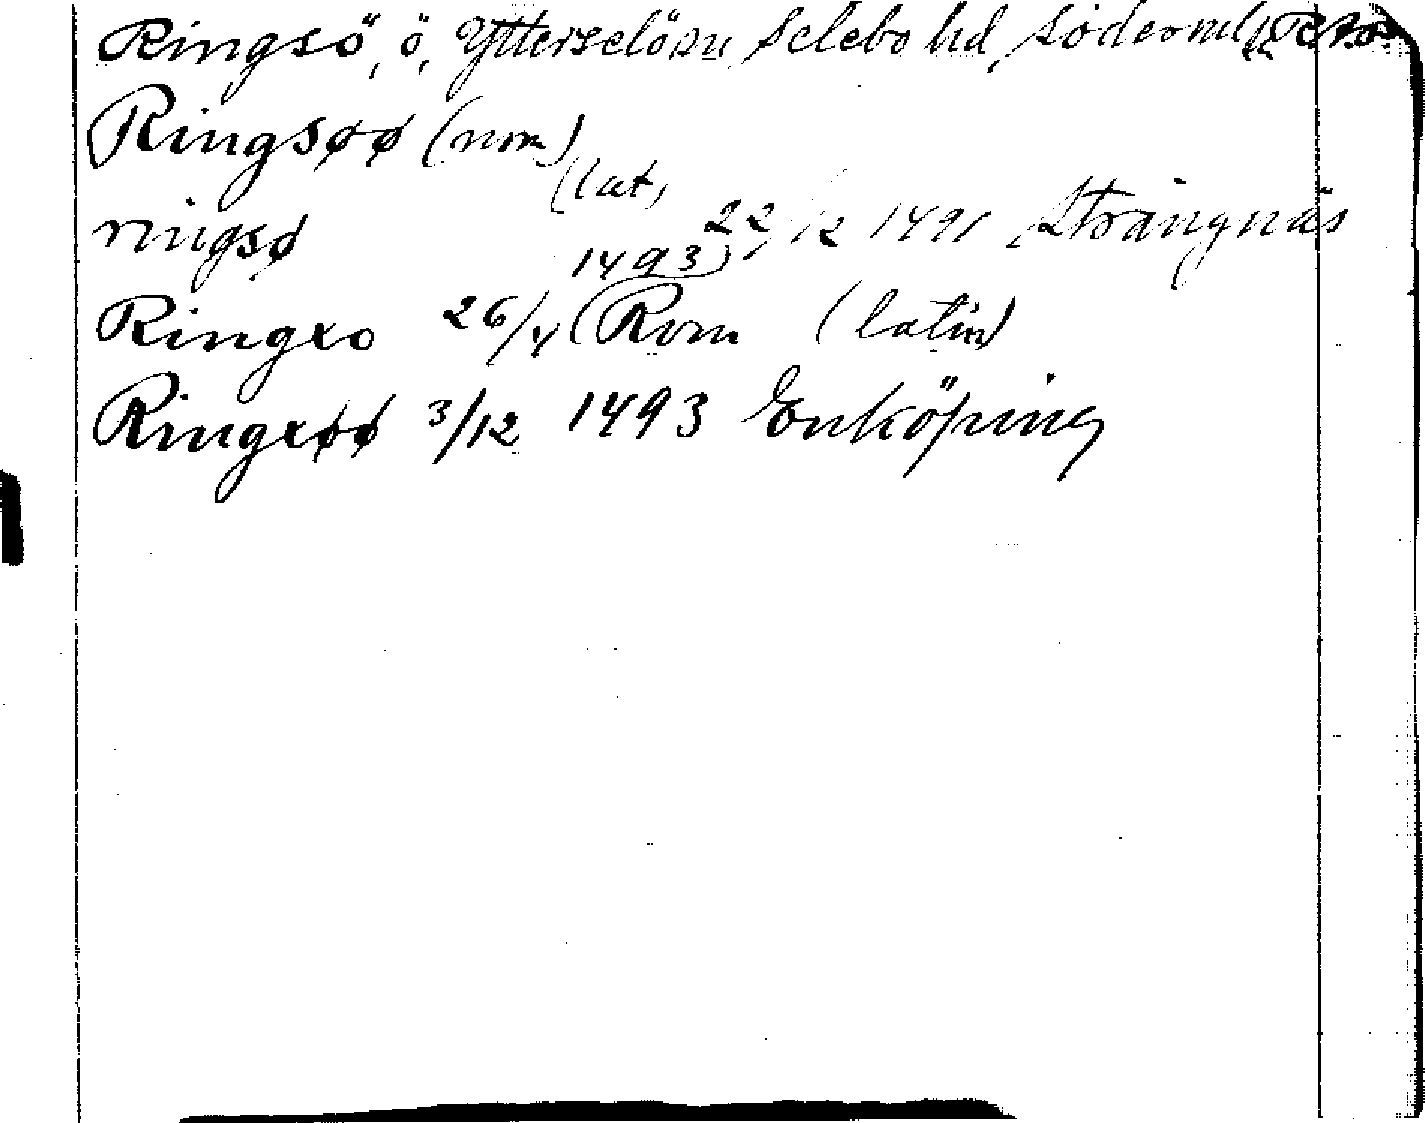 Ringsö, ö, Ytterselösn Selebo hd, Söderml
Ringsøø (nom)
(lat)
ringsø 22/12 1491 Strängnäs
1493
Ringxo 26/4 Rom (latin)
Ringxøø 3/12 1493 Enköping